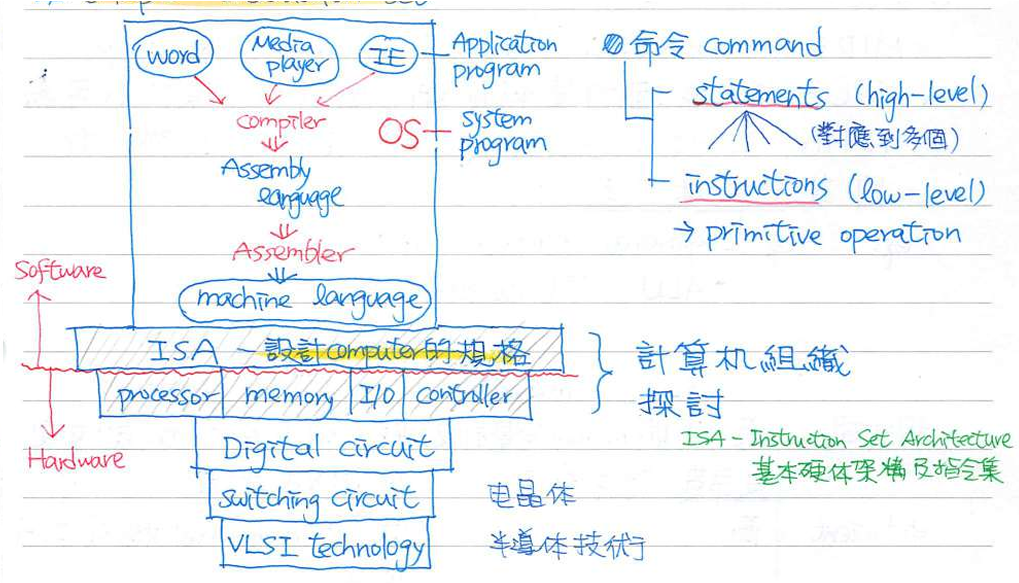 word
Media
player
IE
Application
program
compiler
OS
system
program
Assembly
language
Assembler
machine language
Software
Hardware
ISA - 設計computer的規格
processor memory I/O controller
Digital circuit
switching circuit
VLSI technology
电晶体
半導体技術
命令 command
statements (high-level)
(對應到多個)
instructions (low-level)
→ primitive operation
計算机組織
探討
ISA - Instruction Set Architecture
基本硬体架構及指令集